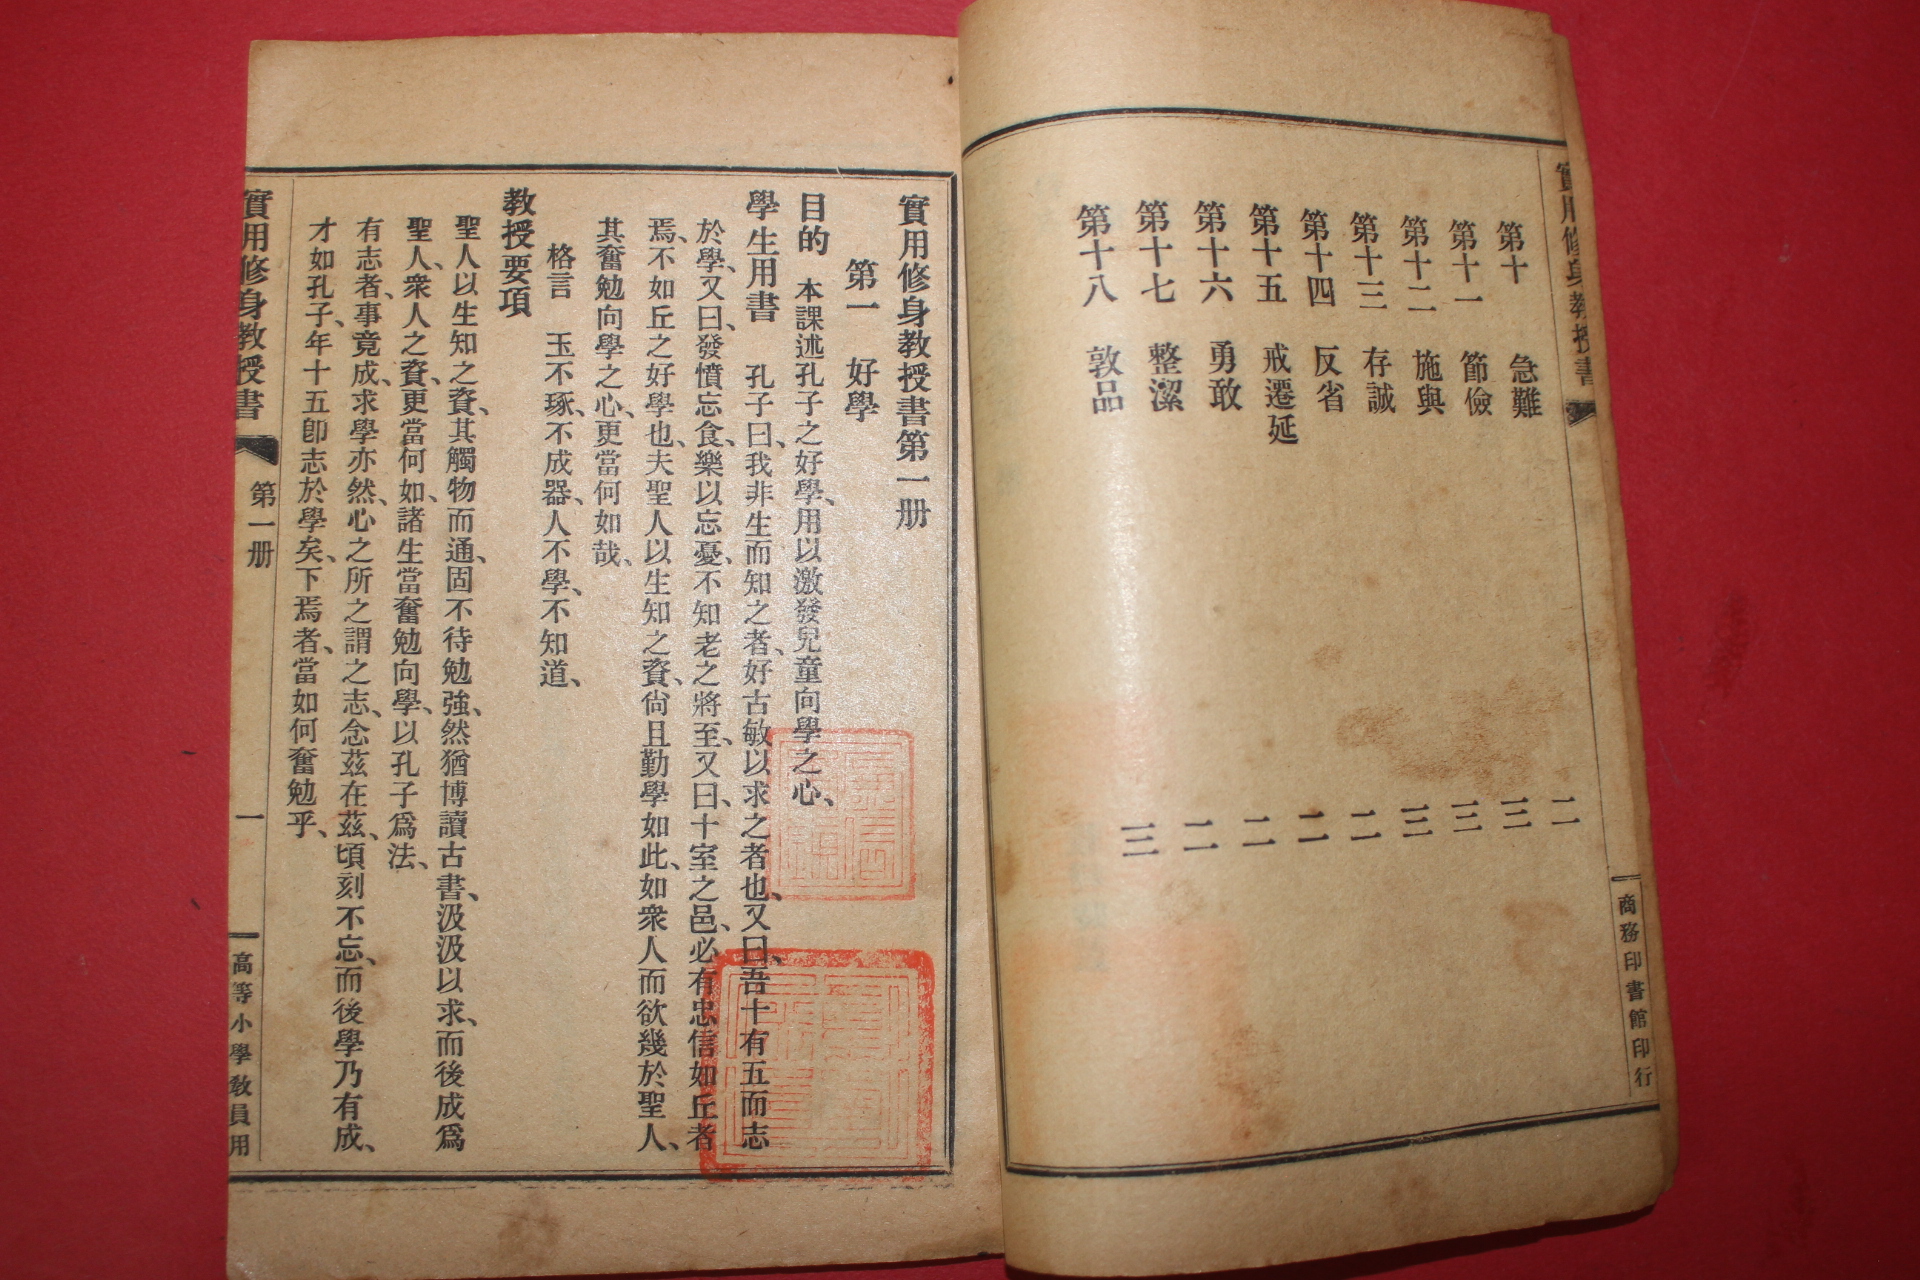 實用修身教授書
商務印書館印行
第十 急難 二
第十一 節儉 三
第十二 施與 三
第十三 存誠 三
第十四 反省 二
第十五 戒遷延 二
第十六 勇敢 二
第十七 整潔 二
第十八 敦品 三
實用修身教授書第一册
第一 好學
目的 本課述孔子之好學、用以激發兒童向學之心、
學生用書 孔子曰、我非生而知之者、好古敏以求之者也、又曰、吾十有五而志
於學、又曰、發憤忘食、樂以忘憂、不知老之將至、又曰、十室之邑、必有忠信如丘者
焉、不如丘之好學也、夫聖人以生知之資、尙且勤學如此、如衆人而欲幾於聖人、
其奮勉向學之心、更當何如哉、
格言 玉不琢、不成器、人不學、不知道、
教授要項
聖人以生知之資、其觸物而通、固不待勉強、然猶博讀古書、汲汲以求、而後成爲
聖人、衆人之資、更當何如、諸生當奮勉向學、以孔子爲法、
有志者、事竟成、求學亦然、心之所之謂之志、念茲在茲、頃刻不忘、而後學乃有成、
才如孔子、年十五卽志於學矣、下焉者、當如何奮勉乎、
實用修身教授書 第一册 一 高等小學敎員用